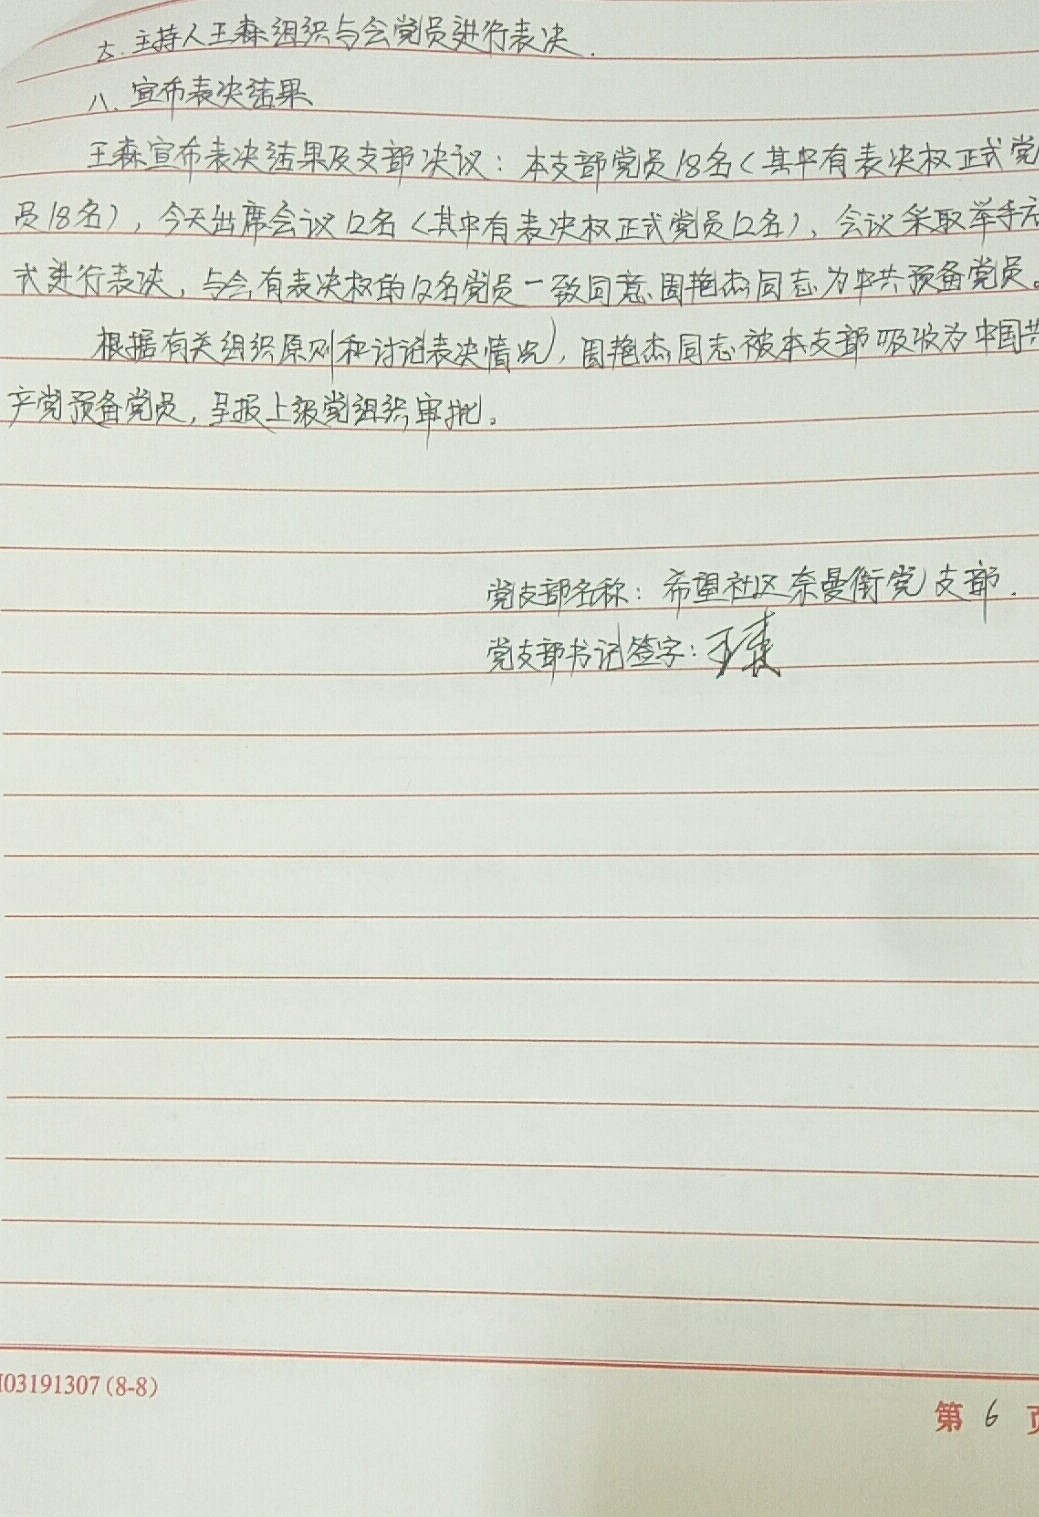 六. 主持人王森组织与会党员进行表决.
八、宣布表决结果
王森宣布表决结果及支部决议：本支部党员18名（其中有表决权正式党
员18名），今天出席会议12名（其中有表决权正式党员12名），会议采取举手方
式进行表决，与会有表决权的12名党员一致同意周艳杰同志为中共预备党员。
根据有关组织原则和讨论表决情况，周艳杰同志被本支部吸收为中国共
产党预备党员，呈报上级党组织审批。
党支部名称：希望社区奈曼街党支部.
党支部书记签字：王森
103191307(8-8)
第 6 页